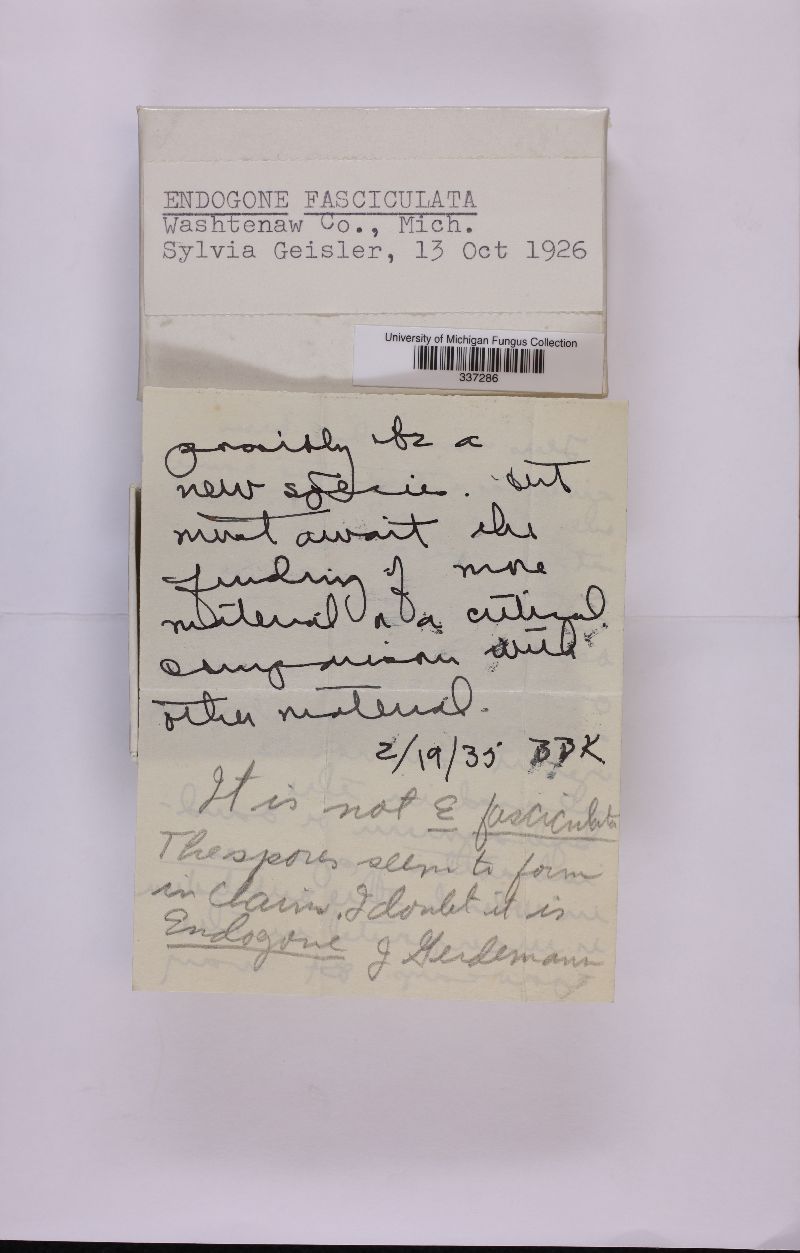 ENDOGONE FASCICULATA
Washtenaw Co., Mich.
Sylvia Geisler, 13 Oct 1926
University of Michigan Fungus Collection
337286
possibly be a
new species. but
must await the
finding of more
material or a critical
comparison with
other material.
2/19/35 BBK
It is not E fasciculata
The spores seem to form
in chains. I doubt it is
Endogone J Gerdemann